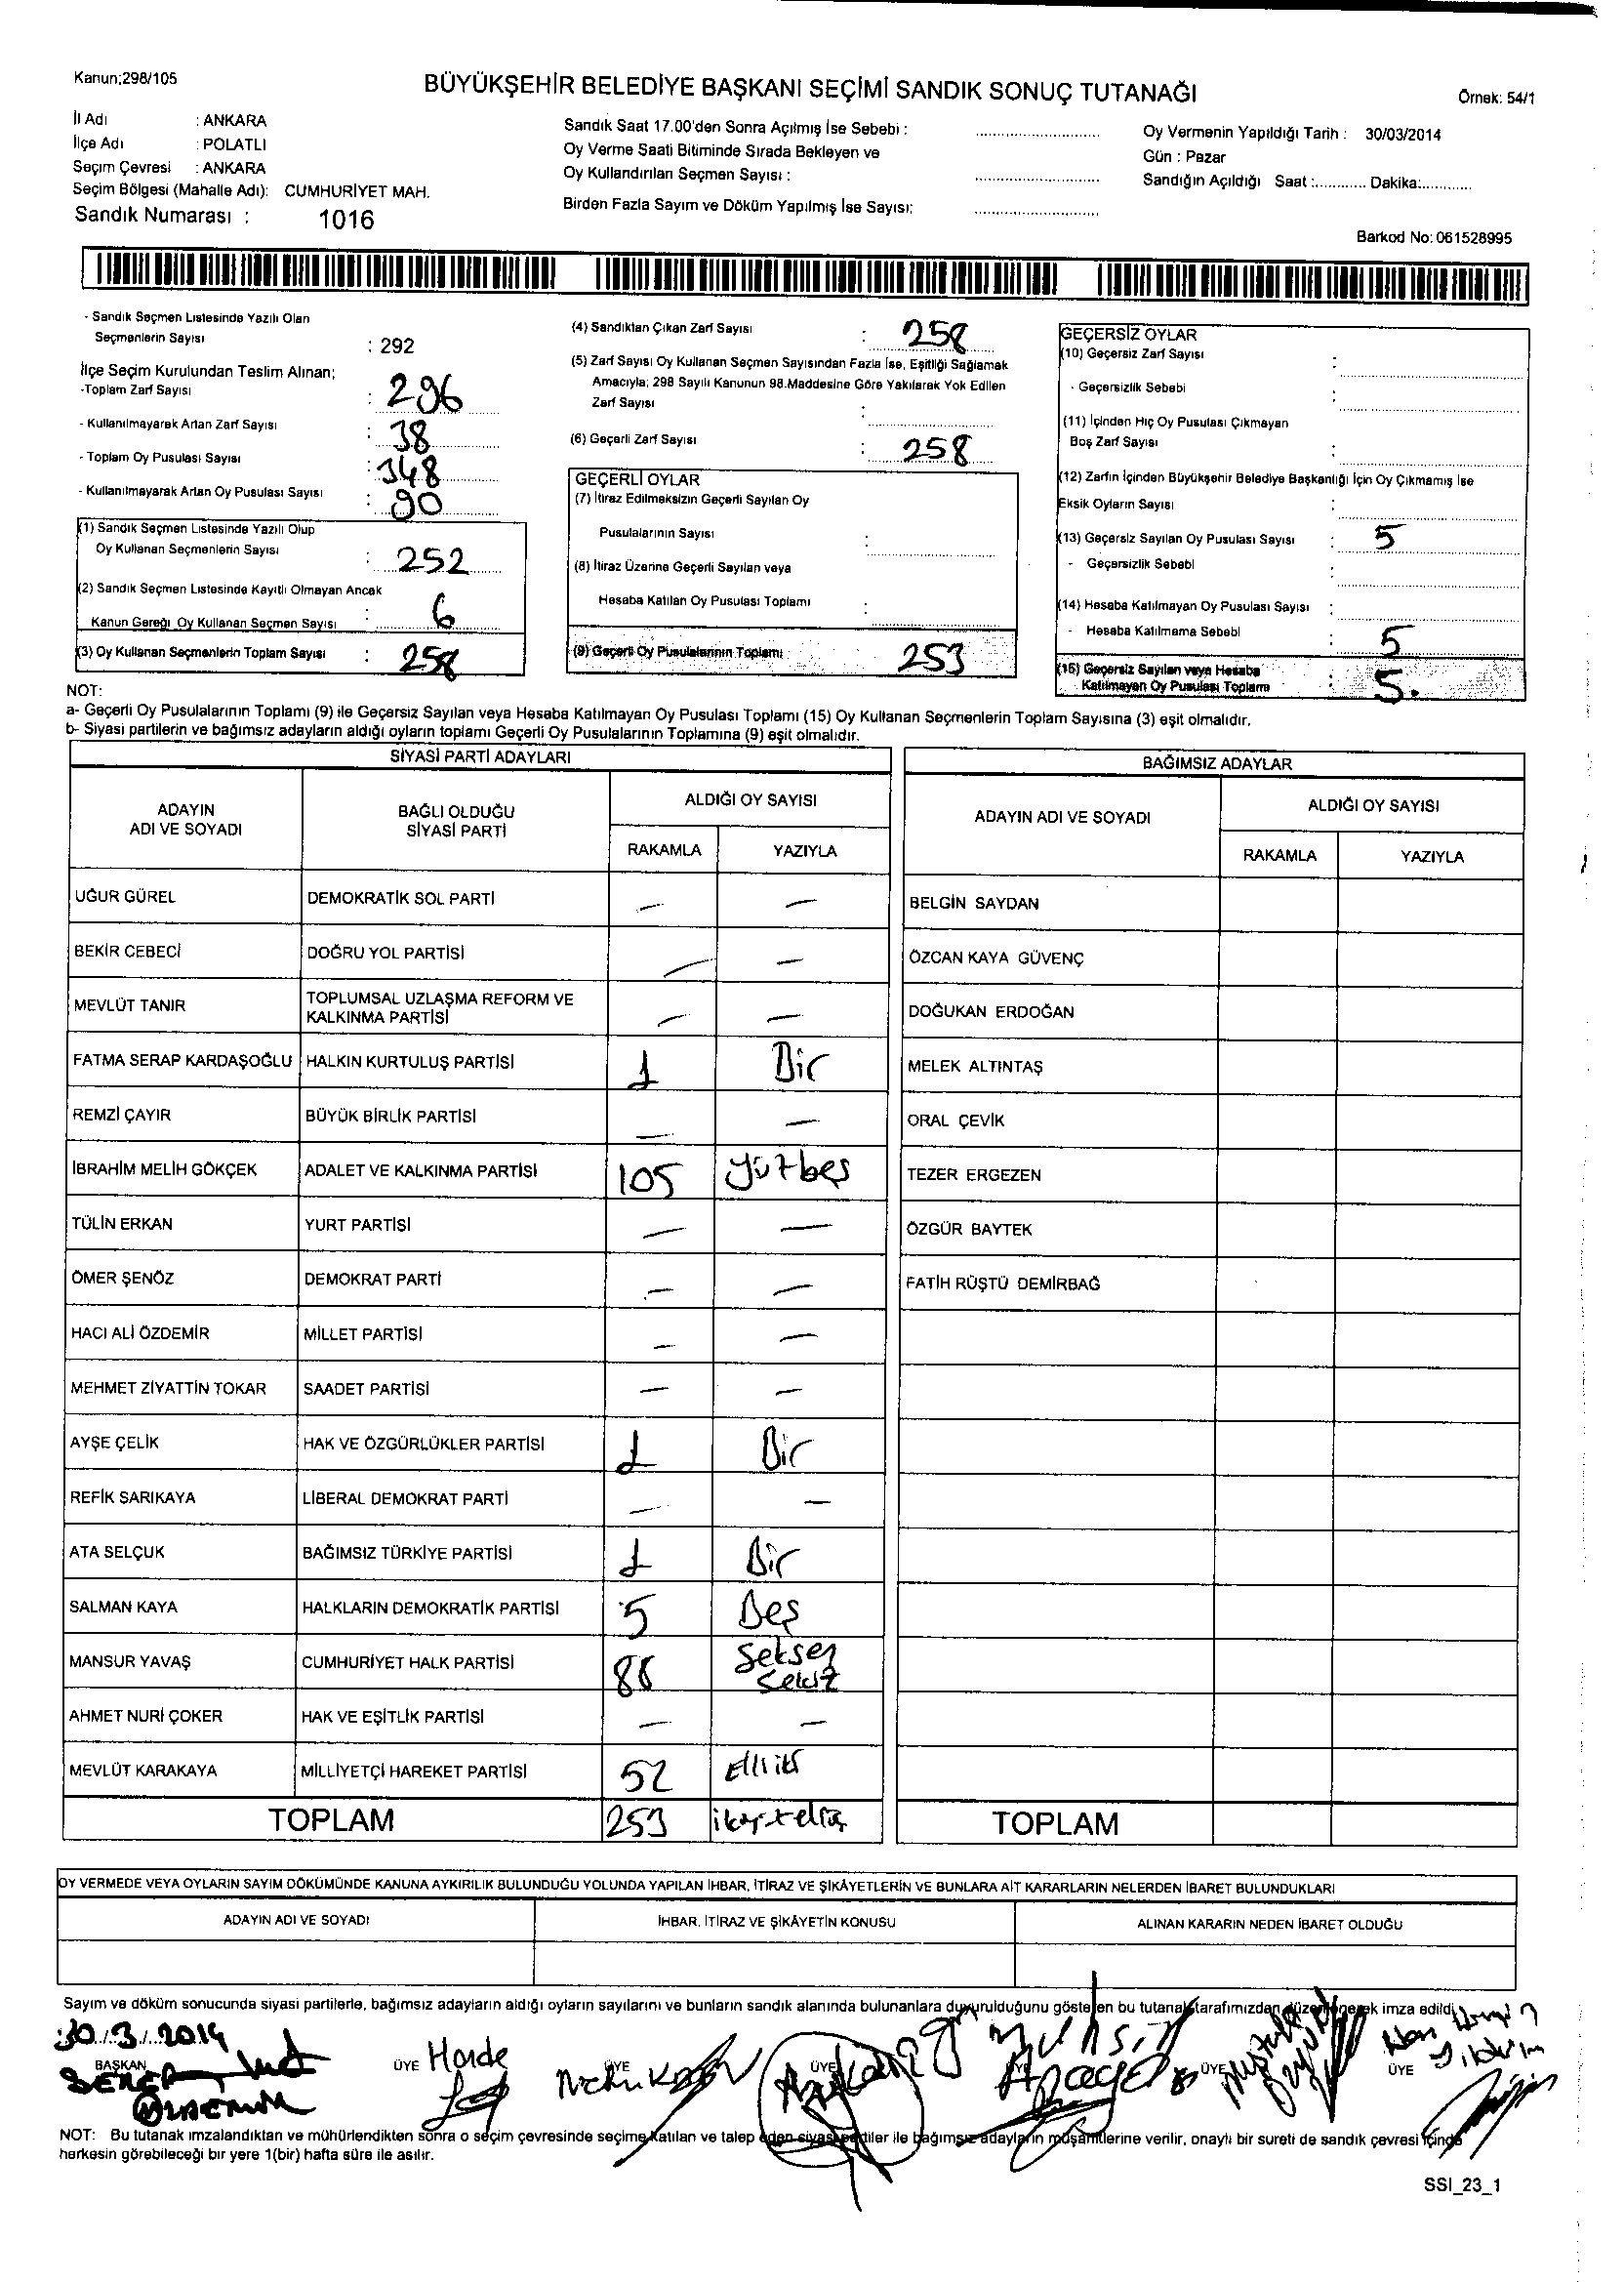 Kanun;298/105
BÜYÜKŞEHİR BELEDİYE BAŞKANI SEÇİMİ SANDIK SONUÇ TUTANAĞI
Örnek: 54/1
İl Adı : ANKARA
İlçe Adı : POLATLI
Seçim Çevresi : ANKARA
Seçim Bölgesi (Mahalle Adı): CUMHURİYET MAH.
Sandık Numarası : 1016
Sandık Saat 17.00'den Sonra Açılmış İse Sebebi :
Oy Verme Saati Bitiminde Sırada Bekleyen ve
Oy Kullandırılan Seçmen Sayısı :
Birden Fazla Sayım ve Döküm Yapılmış İse Sayısı:
Oy Vermenin Yapıldığı Tarih : 30/03/2014
Gün : Pazar
Sandığın Açıldığı Saat :............ Dakika:............
Barkod No: 061528995
- Sandık Seçmen Listesinde Yazılı Olan
Seçmenlerin Sayısı : 292
İlçe Seçim Kurulundan Teslim Alınan;
-Toplam Zarf Sayısı : 296
- Kullanılmayarak Artan Zarf Sayısı : 38
- Toplam Oy Pusulası Sayısı : 348
- Kullanılmayarak Artan Oy Pusulası Sayısı : 90
(1) Sandık Seçmen Listesinde Yazılı Olup
Oy Kullanan Seçmenlerin Sayısı : 252
(2) Sandık Seçmen Listesinde Kayıtlı Olmayan Ancak
Kanun Gereği Oy Kullanan Seçmen Sayısı : 6
(3) Oy Kullanan Seçmenlerin Toplam Sayısı : 258
(4) Sandıktan Çıkan Zarf Sayısı : 258
(5) Zarf Sayısı Oy Kullanan Seçmen Sayısından Fazla İse, Eşitliği Sağlamak
Amacıyla; 298 Sayılı Kanunun 98.Maddesine Göre Yakılarak Yok Edilen
Zarf Sayısı :
(6) Geçerli Zarf Sayısı : 258
GEÇERLİ OYLAR
(7) İtiraz Edilmeksizin Geçerli Sayılan Oy
Pusulalarının Sayısı :
(8) İtiraz Üzerine Geçerli Sayılan veya
Hesaba Katılan Oy Pusulası Toplamı :
(9) Geçerli Oy Pusulalarının Toplamı : 253
GEÇERSİZ OYLAR
(10) Geçersiz Zarf Sayısı :
- Geçersizlik Sebebi :
(11) İçinden Hiç Oy Pusulası Çıkmayan
Boş Zarf Sayısı :
(12) Zarfın İçinden Büyükşehir Belediye Başkanlığı İçin Oy Çıkmamış İse
Eksik Oyların Sayısı :
(13) Geçersiz Sayılan Oy Pusulası Sayısı : 5
- Geçersizlik Sebebi :
(14) Hesaba Katılmayan Oy Pusulası Sayısı :
- Hesaba Katılmama Sebebi : 5
(15) Geçersiz Sayılan veya Hesaba
Katılmayan Oy Pusulası Toplamı : 5.
NOT:
a- Geçerli Oy Pusulalarının Toplamı (9) ile Geçersiz Sayılan veya Hesaba Katılmayan Oy Pusulası Toplamı (15) Oy Kullanan Seçmenlerin Toplam Sayısına (3) eşit olmalıdır.
b- Siyasi partilerin ve bağımsız adayların aldığı oyların toplamı Geçerli Oy Pusulalarının Toplamına (9) eşit olmalıdır.
SİYASİ PARTİ ADAYLARI
ADAYIN ADI VE SOYADI BAĞLI OLDUĞU SİYASİ PARTİ ALDIĞI OY SAYISI
RAKAMLA YAZIYLA
UĞUR GÜREL DEMOKRATİK SOL PARTİ — —
BEKİR CEBECİ DOĞRU YOL PARTİSİ — —
MEVLÜT TANIR TOPLUMSAL UZLAŞMA REFORM VE KALKINMA PARTİSİ — —
FATMA SERAP KARDAŞOĞLU HALKIN KURTULUŞ PARTİSİ 1 Bir
REMZİ ÇAYIR BÜYÜK BİRLİK PARTİSİ — —
İBRAHİM MELİH GÖKÇEK ADALET VE KALKINMA PARTİSİ 105 yüzbeş
TÜLİN ERKAN YURT PARTİSİ — —
ÖMER ŞENÖZ DEMOKRAT PARTİ — —
HACI ALİ ÖZDEMİR MİLLET PARTİSİ — —
MEHMET ZİYATTİN TOKAR SAADET PARTİSİ — —
AYŞE ÇELİK HAK VE ÖZGÜRLÜKLER PARTİSİ 1 Bir
REFİK SARIKAYA LİBERAL DEMOKRAT PARTİ — —
ATA SELÇUK BAĞIMSIZ TÜRKİYE PARTİSİ 1 Bir
SALMAN KAYA HALKLARIN DEMOKRATİK PARTİSİ 5 Beş
MANSUR YAVAŞ CUMHURİYET HALK PARTİSİ 88 Seksen Sekiz
AHMET NURİ ÇOKER HAK VE EŞİTLİK PARTİSİ — —
MEVLÜT KARAKAYA MİLLİYETÇİ HAREKET PARTİSİ 52 Elliiki
TOPLAM 253
BAĞIMSIZ ADAYLAR
ADAYIN ADI VE SOYADI ALDIĞI OY SAYISI
RAKAMLA YAZIYLA
BELGİN SAYDAN
ÖZCAN KAYA GÜVENÇ
DOĞUKAN ERDOĞAN
MELEK ALTINTAŞ
ORAL ÇEVİK
TEZER ERGEZEN
ÖZGÜR BAYTEK
FATİH RÜŞTÜ DEMİRBAĞ
TOPLAM
OY VERMEDE VEYA OYLARIN SAYIM DÖKÜMÜNDE KANUNA AYKIRILIK BULUNDUĞU YOLUNDA YAPILAN İHBAR, İTİRAZ VE ŞİKÂYETLERİN VE BUNLARA AİT KARARLARIN NELERDEN İBARET BULUNDUKLARI
ADAYIN ADI VE SOYADI İHBAR, İTİRAZ VE ŞİKÂYETİN KONUSU ALINAN KARARIN NEDEN İBARET OLDUĞU
Sayım ve döküm sonucunda siyasi partilerle, bağımsız adayların aldığı oyların sayılarını ve bunların sandık alanında bulunanlara duyurulduğunu gösteren bu tutanak tarafımızdan düzenlenerek imza edildi.
30/3/2014
BAŞKAN ÜYE ÜYE ÜYE ÜYE ÜYE
NOT: Bu tutanak imzalandıktan ve mühürlendikten sonra o seçim çevresinde seçime katılan ve talep eden siyasi partiler ile bağımsız adayların müşahitlerine verilir, onaylı bir sureti de sandık çevresi içinde
herkesin görebileceği bir yere 1(bir) hafta süre ile asılır.
SSI_23_1